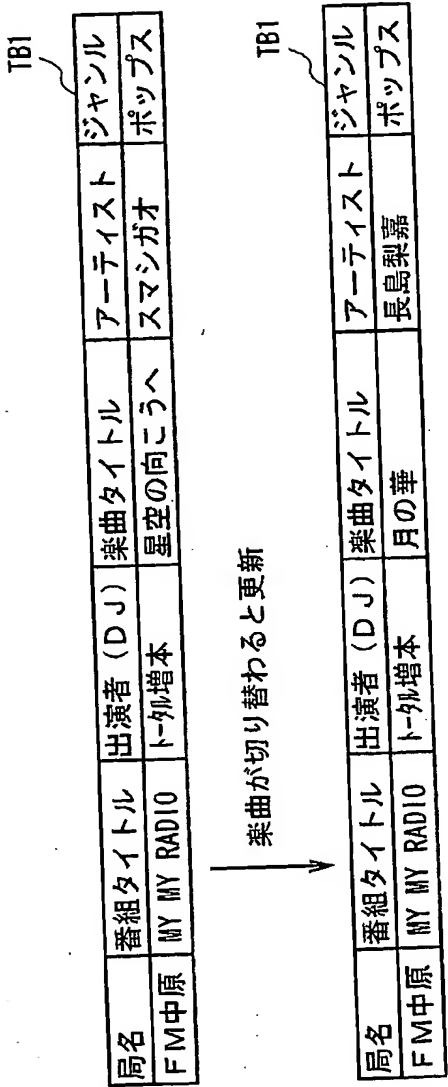 TB1
局名 番組タイトル 出演者(DJ) 楽曲タイトル アーティスト ジャンル
FM中原 MY MY RADIO トータル増本 星空の向こうへ スマシガオ ポップス
楽曲が切り替わると更新
TB1
局名 番組タイトル 出演者(DJ) 楽曲タイトル アーティスト ジャンル
FM中原 MY MY RADIO トータル増本 月の華 長島梨嘉 ポップス